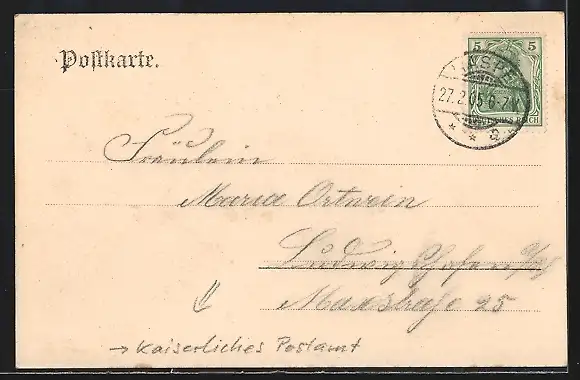 Postkarte.
5 5
27.2.05 6-7 N
DEUTSCHES REICH
Fräulein
Maria Ortwein
Ludwigshafen a/Rh
Maxstraße 25
→ Kaiserliches Postamt